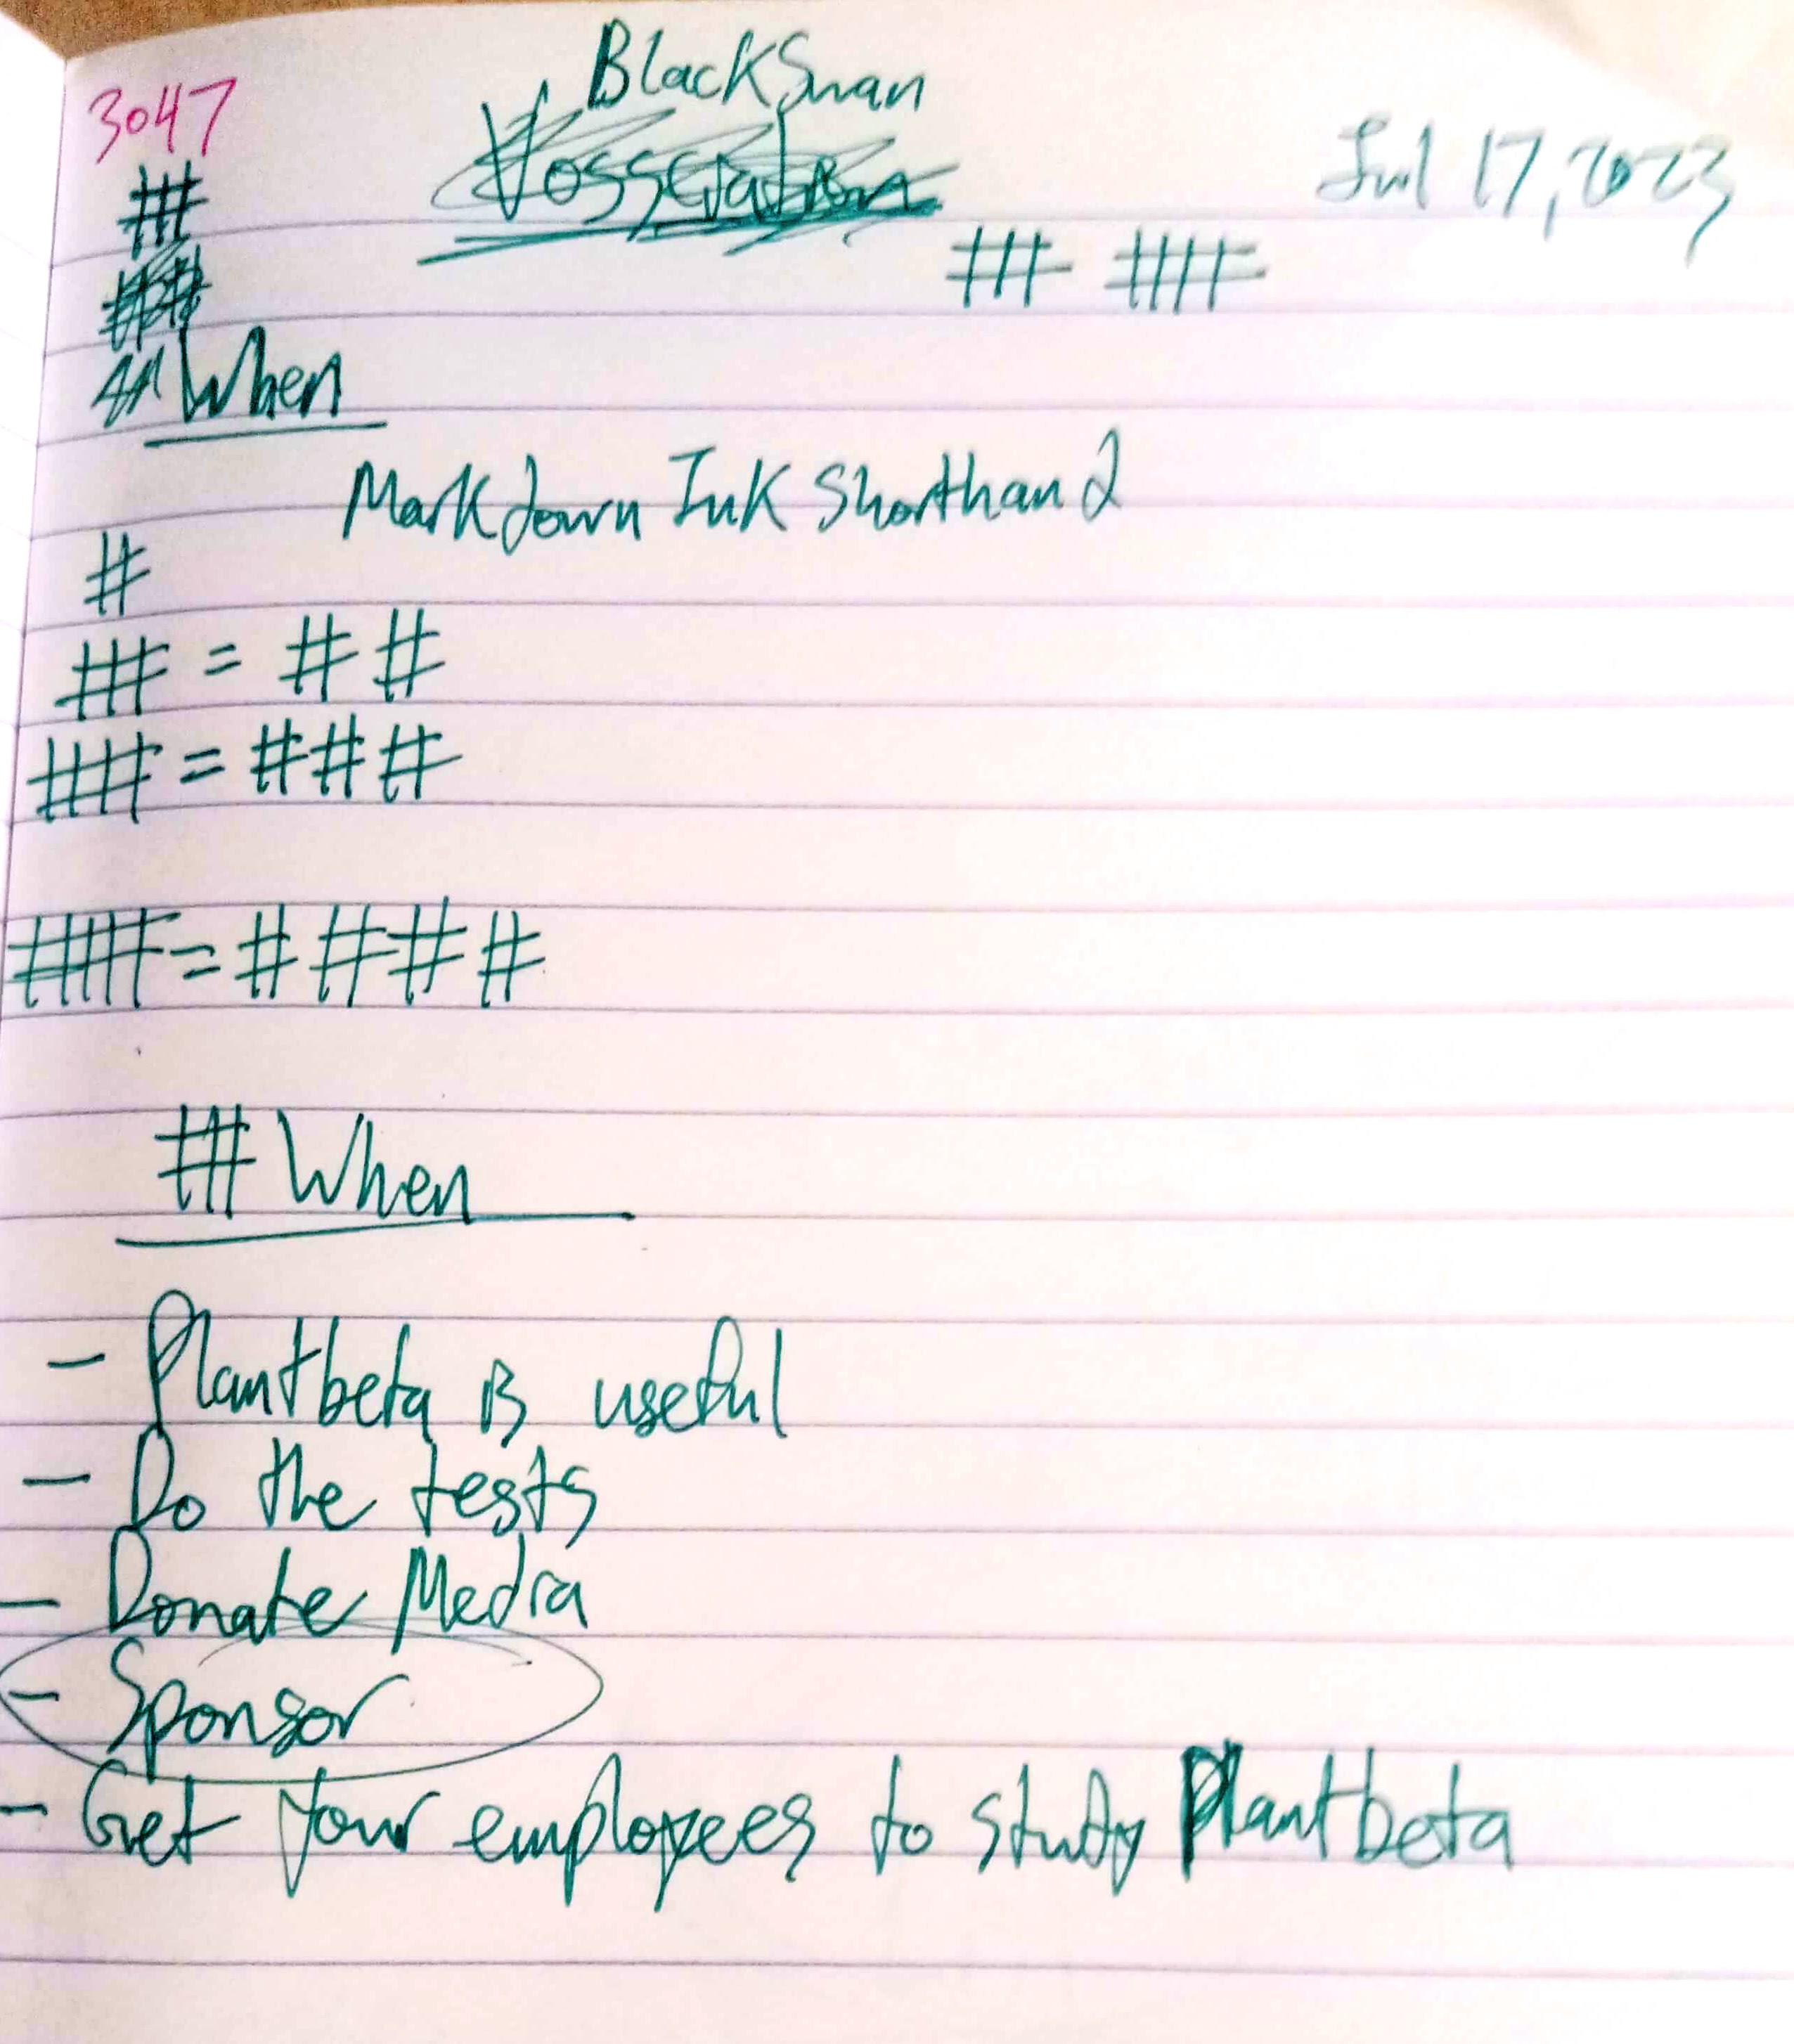 3047
BlackSwan
Jul 17, 2023
When
Markdown Ink Shorthand
#
## = # #
### = # # #
#### = # # # #
## When
- Plantbeta is useful
- Do the tests
- Donate Media
- Sponsor
- Get your employees to study Plantbeta